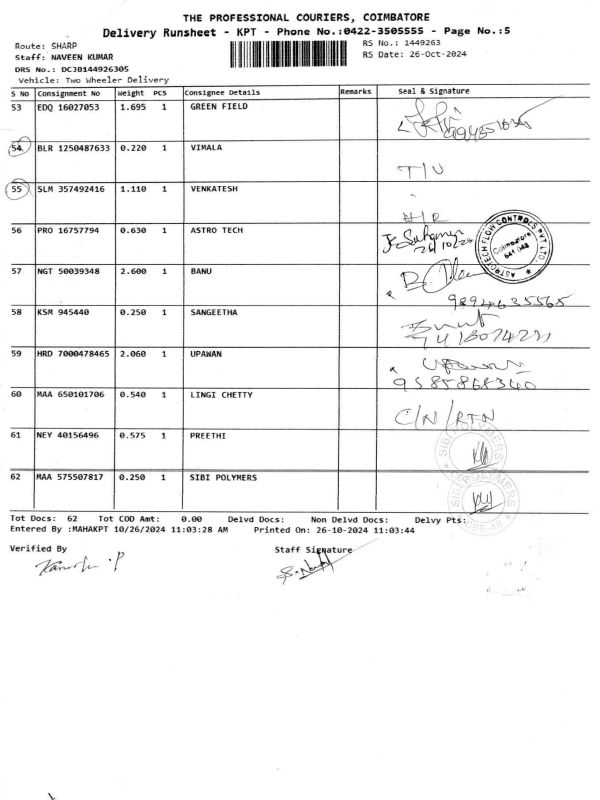 THE PROFESSIONAL COURIERS, COIMBATORE
Delivery Runsheet - KPT - Phone No.:0422-3505555 - Page No.:5
Route: SHARP
RS No.: 1449263
Staff: NAVEEN KUMAR
RS Date: 26-Oct-2024
DRS No.: DCJB144926305
Vehicle: Two Wheeler Delivery
S No Consignment No Weight PCS Consignee Details Remarks Seal & Signature
53 EDQ 16027053 1.695 1 GREEN FIELD
54 BLR 1250487633 0.220 1 VIMALA
T/U
55 SLM 357492416 1.110 1 VENKATESH
56 PRO 16757794 0.630 1 ASTRO TECH
26/10/24
ASTROTECH FLOW CONTROLS PVT LTD.
Coimbatore
641 048
57 NGT 50039348 2.600 1 BANU
9894635565
58 KSM 945440 0.250 1 SANGEETHA
59 HRD 7000478465 2.060 1 UPAWAN
9585868340
60 MAA 650101706 0.540 1 LINGI CHETTY
C/N/RTN
61 NEY 40156496 0.575 1 PREETHI
SIBI POLYMERS
62 MAA 575507817 0.250 1 SIBI POLYMERS
SIBI POLYMERS
Tot Docs: 62 Tot COD Amt: 0.00 Delvd Docs: Non Delvd Docs: Delvy Pts:
Entered By :MAHAKPT 10/26/2024 11:03:28 AM Printed On: 26-10-2024 11:03:44
Verified By
Staff Signature